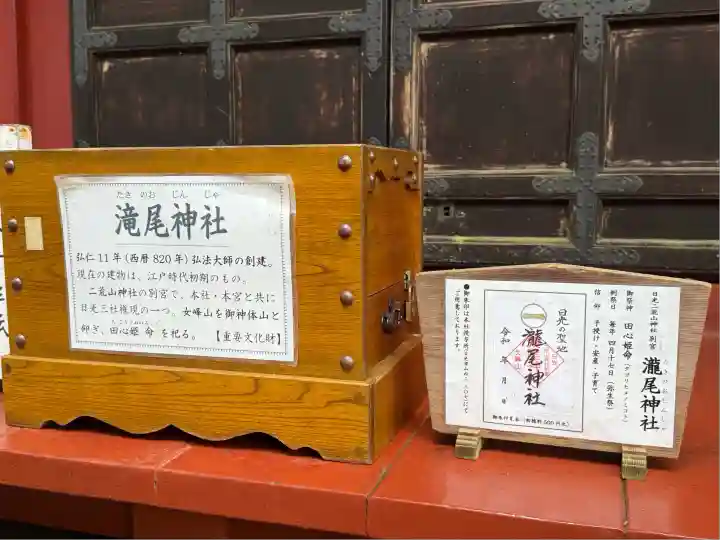 たき の お じん じゃ
滝尾神社
弘仁11年(西暦820年)弘法大師の創建。
現在の建物は、江戸時代初期のもの。
二荒山神社の別宮で、本社・本宮と共に
日光三社権現の一つ。女峰山を御神体山と
仰ぎ、田心姫命を祀る。【重要文化財】
日光二荒山神社 別宮
瀧尾神社
御祭神 田心姫命(タゴリヒメノミコト)
例祭日 毎年 四月十七日(弥生祭)
信仰 子授け・安産・子育て
日光の聖地
瀧尾神社
令和 年 月 日
御朱印見本(初穂料500円也)
●御朱印は本社授与所
にて
ご用意しております。